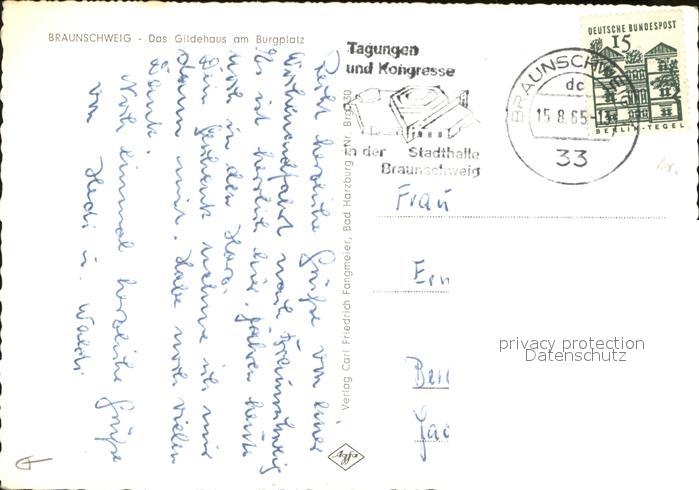 BRAUNSCHWEIG - Das Gildehaus am Burgplatz
Recht herzliche Grüße von einer
Wochenendfahrt nach Braunschweig
Es ist herrlich hier. fahren heute
noch in den Harz.
Dein Geschenk nehme ich mir
dann mit. Habe noch vielen
Dank.
Noch einmal herzliche Grüße
von Hedi u. Waldi
Verlag Carl Friedrich Fangmeier, Bad Harzburg
Tagungen
und Kongresse
in der Stadthalle
Braunschweig
BRAUNSCHWEIG
dc
15.8.65-13
33
DEUTSCHE BUNDESPOST
15
BERLIN-TEGEL
Frau
Ern
privacy protection
Datenschutz